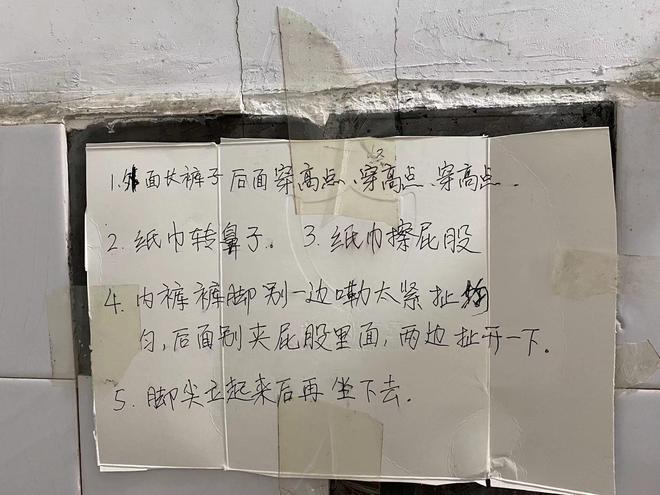 1.外面长裤子后面穿高点、穿高点、穿高点.
2.纸巾转鼻子. 3.纸巾擦屁股
4.内裤裤脚别一边嘞太紧扯
匀,后面别夹屁股里面,两边扯开一下。
5.脚尖立起来后再坐下去.